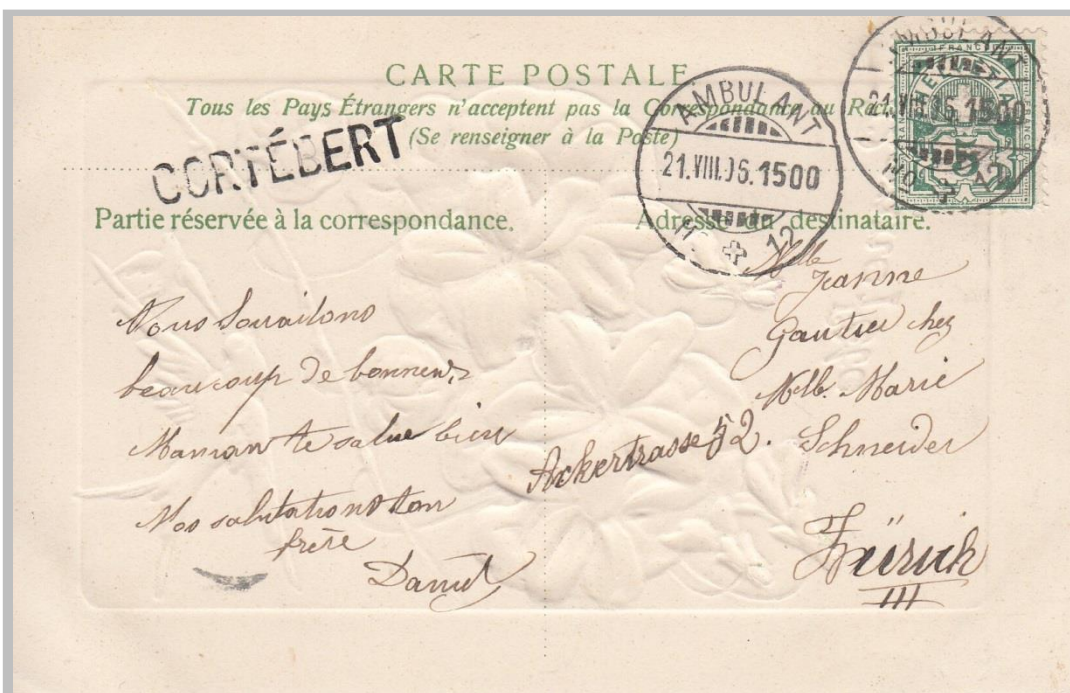 CARTE POSTALE
Tous les Pays Étrangers n'acceptent pas la Correspondance au
(Se renseigner à la Poste)
CORTÉBERT
AMBULANT
21.VIII.06.1500
12
AMBULANT
21.VIII.06.1500
12
FRANCO
HELVETIA
5
Partie réservée à la correspondance.
Adresse du destinataire.
Nous Souaitons
beaucoup de bonneur
Maman te salue bien
Nos salutations ton
frère
Daniel
Mlle
Jeanne
Gautier chez
Mlle. Marie
Schneider
Ackertrasse 52.
Zürich
III